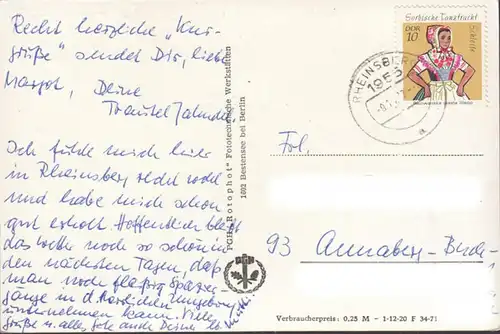 Recht herzliche „Kur-
grüße" sendet Dir, liebe
Margot, Deine
Traudel
Ich fühle mich hier
in Rheinsberg recht wohl
und habe mich schon
gut erholt. Hoffentlich bleibt
das Wetter noch so schön in
den nächsten Tagen, daß
man noch fleißig Spazier-
gänge in d. herrlichen Umgebung
unternehmen kann. Vieles
Gute u. alles Liebe Deine
PGH „Rotophot" Fotochemische Werkstätten
1602 Bestensee bei Berlin
Sorbische Tanztracht
DDR
10
RHEINSBERG
1955
a
Frl.
93 Annaberg-Buch-
Verbraucherpreis: 0,25 M - 1-12-20 F 34-71